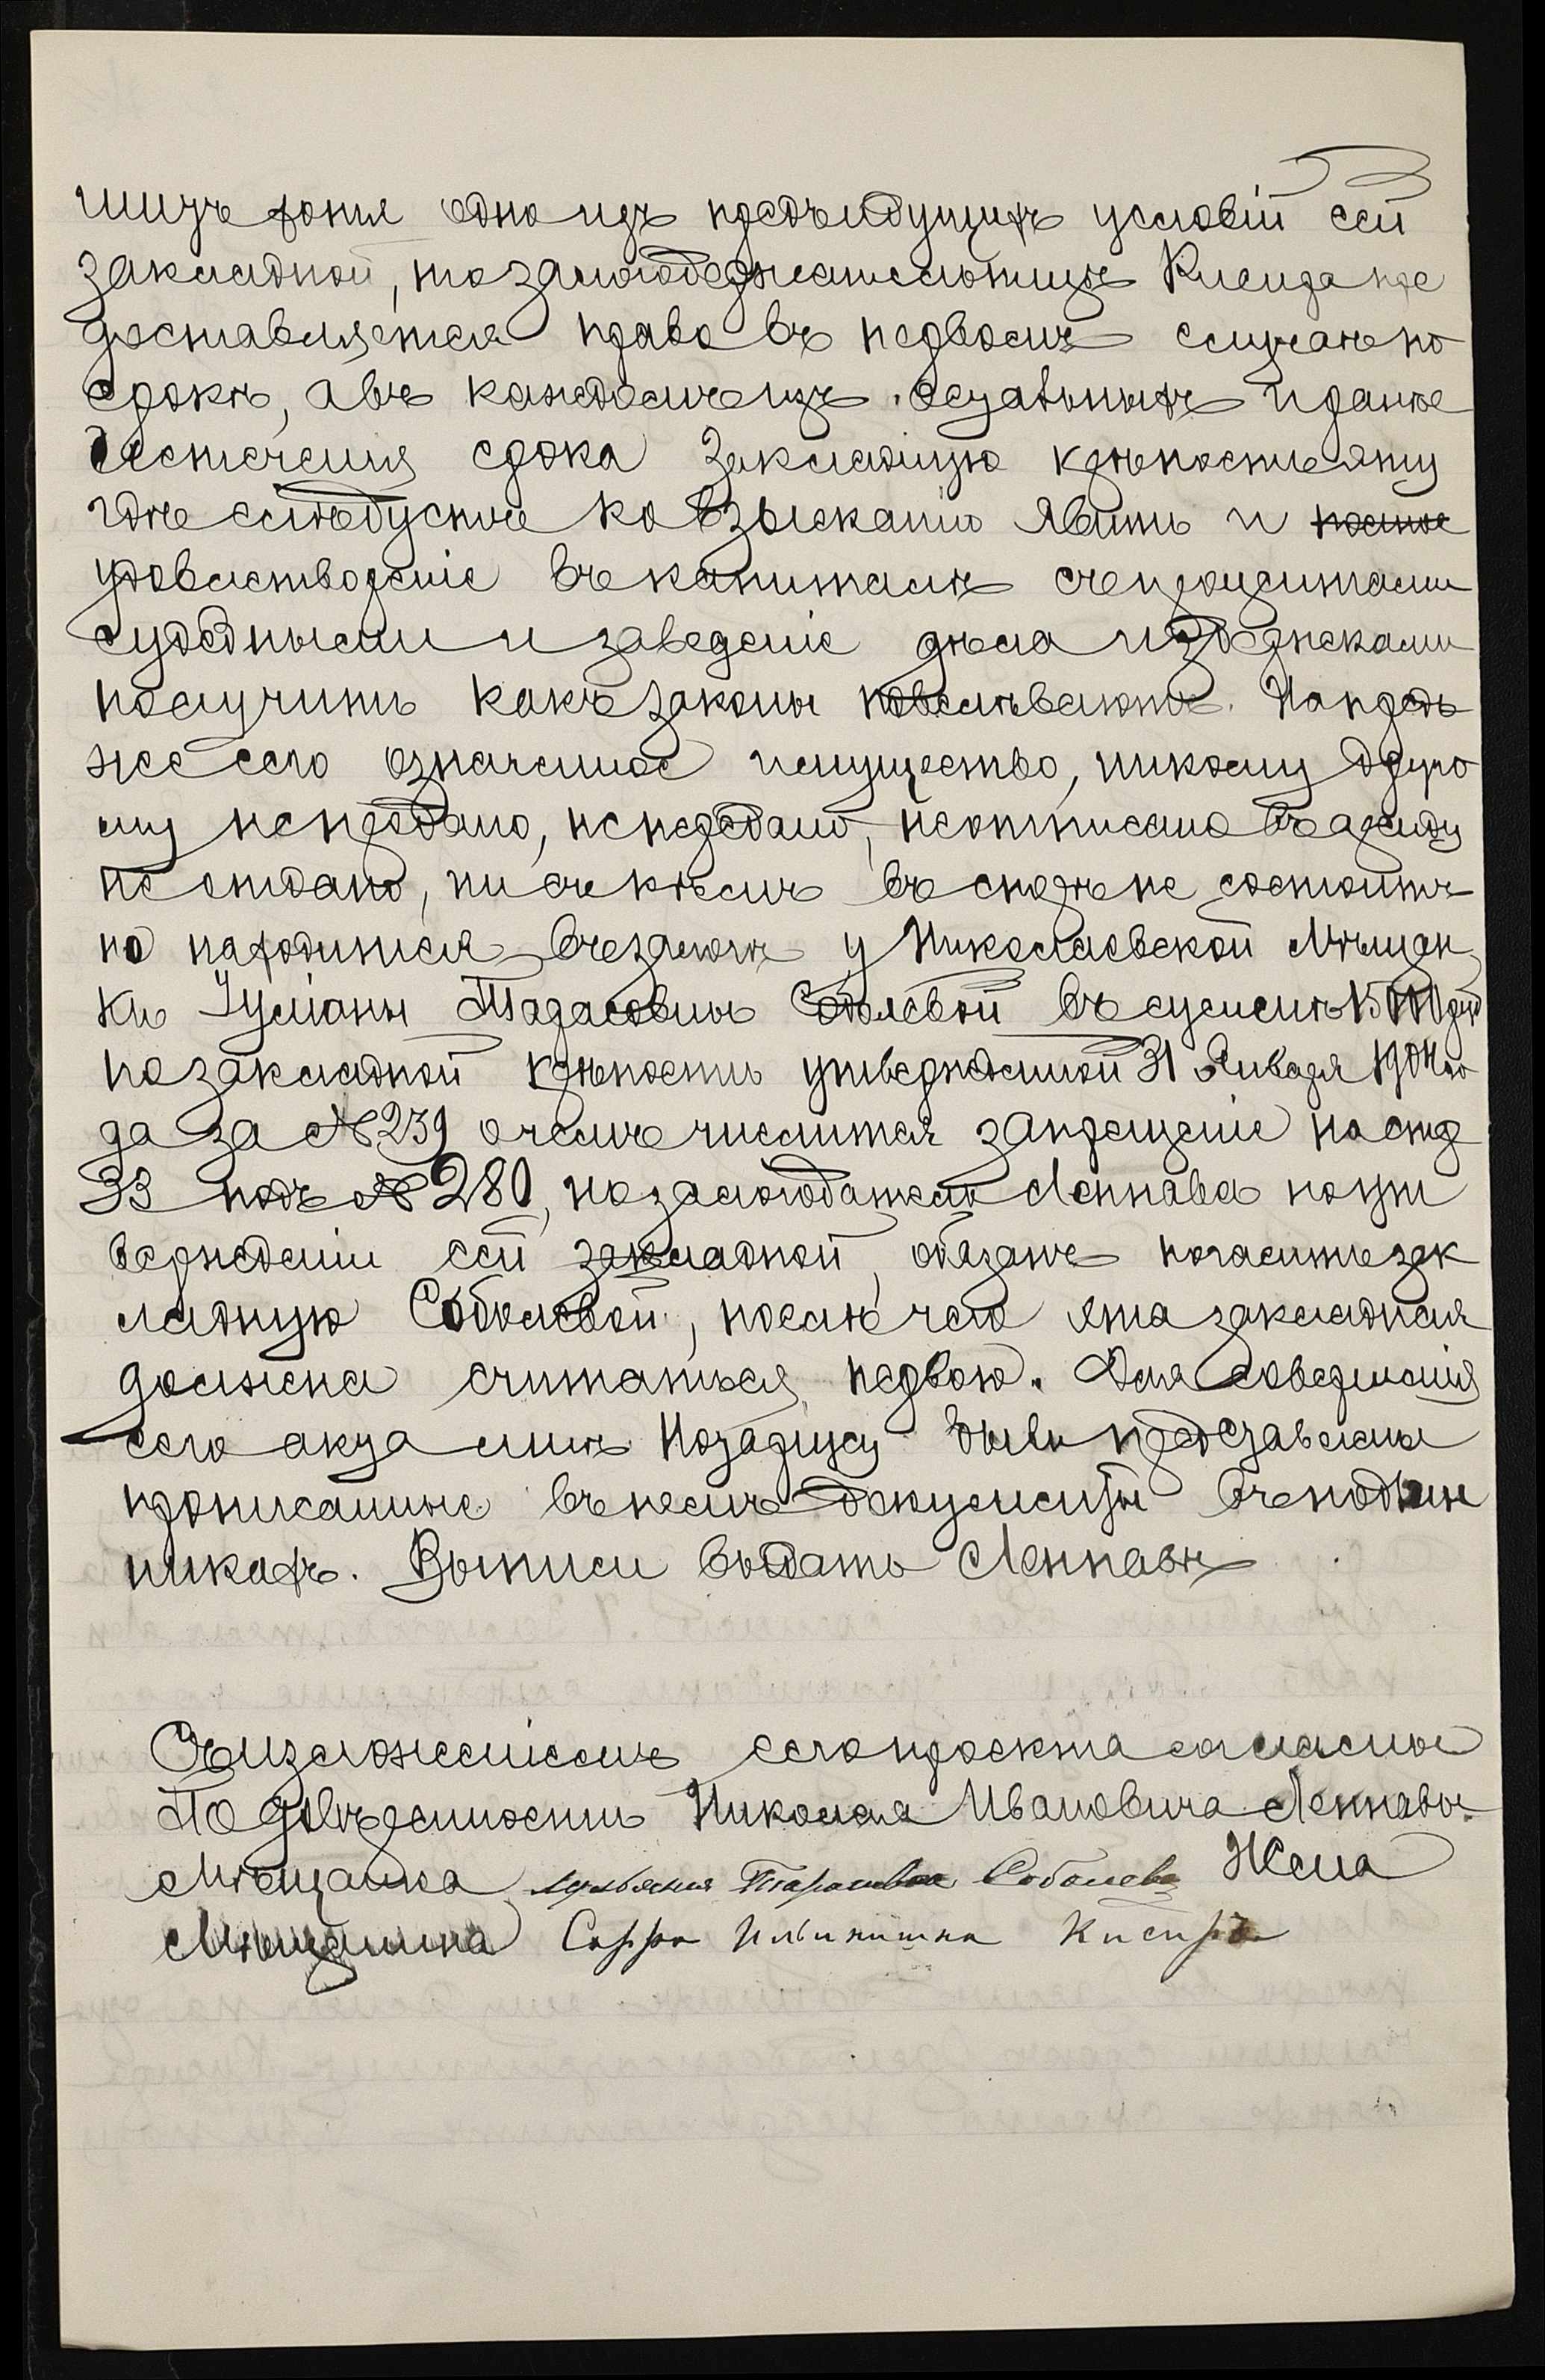 шитъ хотя одно изъ предъидущихъ условій сей
закладной, то залогодержательницѣ Кменда пре
доставляется право въ первомъ случаѣ по
срокѣ, а въ каждомъ изъ остальныхъ и ранѣе
истеченія срока закладную крѣпость эту
гдѣ слѣдуетъ ко взысканію явить и полное
удовлетвореніе въ капиталѣ съ процентами
судебными и заведеніе дѣла издержками
получить какъ законы повелѣваютъ. Напредь
же сего означенное имущество, никому друго
му непродано, непередано, неотписано въ аренду
не отдано, ни съ кѣмъ въ спорѣ не состоитъ
но находится въ залогѣ у Николаевской мѣщан
ки Іуліаны Тарасовны Соболевой въ суммѣ 15000 руб
по закладной крѣпости утвержденной 31 Января 1904 го
да за № 239 о чемъ числится запрещеніе на стр
33 подъ № 280, но залогодатель Леннава по утв
вержденіи сей закладной, обязанъ погасить зак
ладную Соболевой, послѣ чего эта закладная
должна считаться первою. Для совершенія
сего акта мнѣ Нотаріусу были представлены
прописанные въ немъ документы въ подлин
никахъ. Выписи выдать Леннавѣ
Съ изложеніемъ сего проекта согласны
По довѣренности Николая Ивановича Леннавы
Мѣщанка Іульянія Тарасовна Соболева Жена
Мѣщанина Сарра Ильинишна